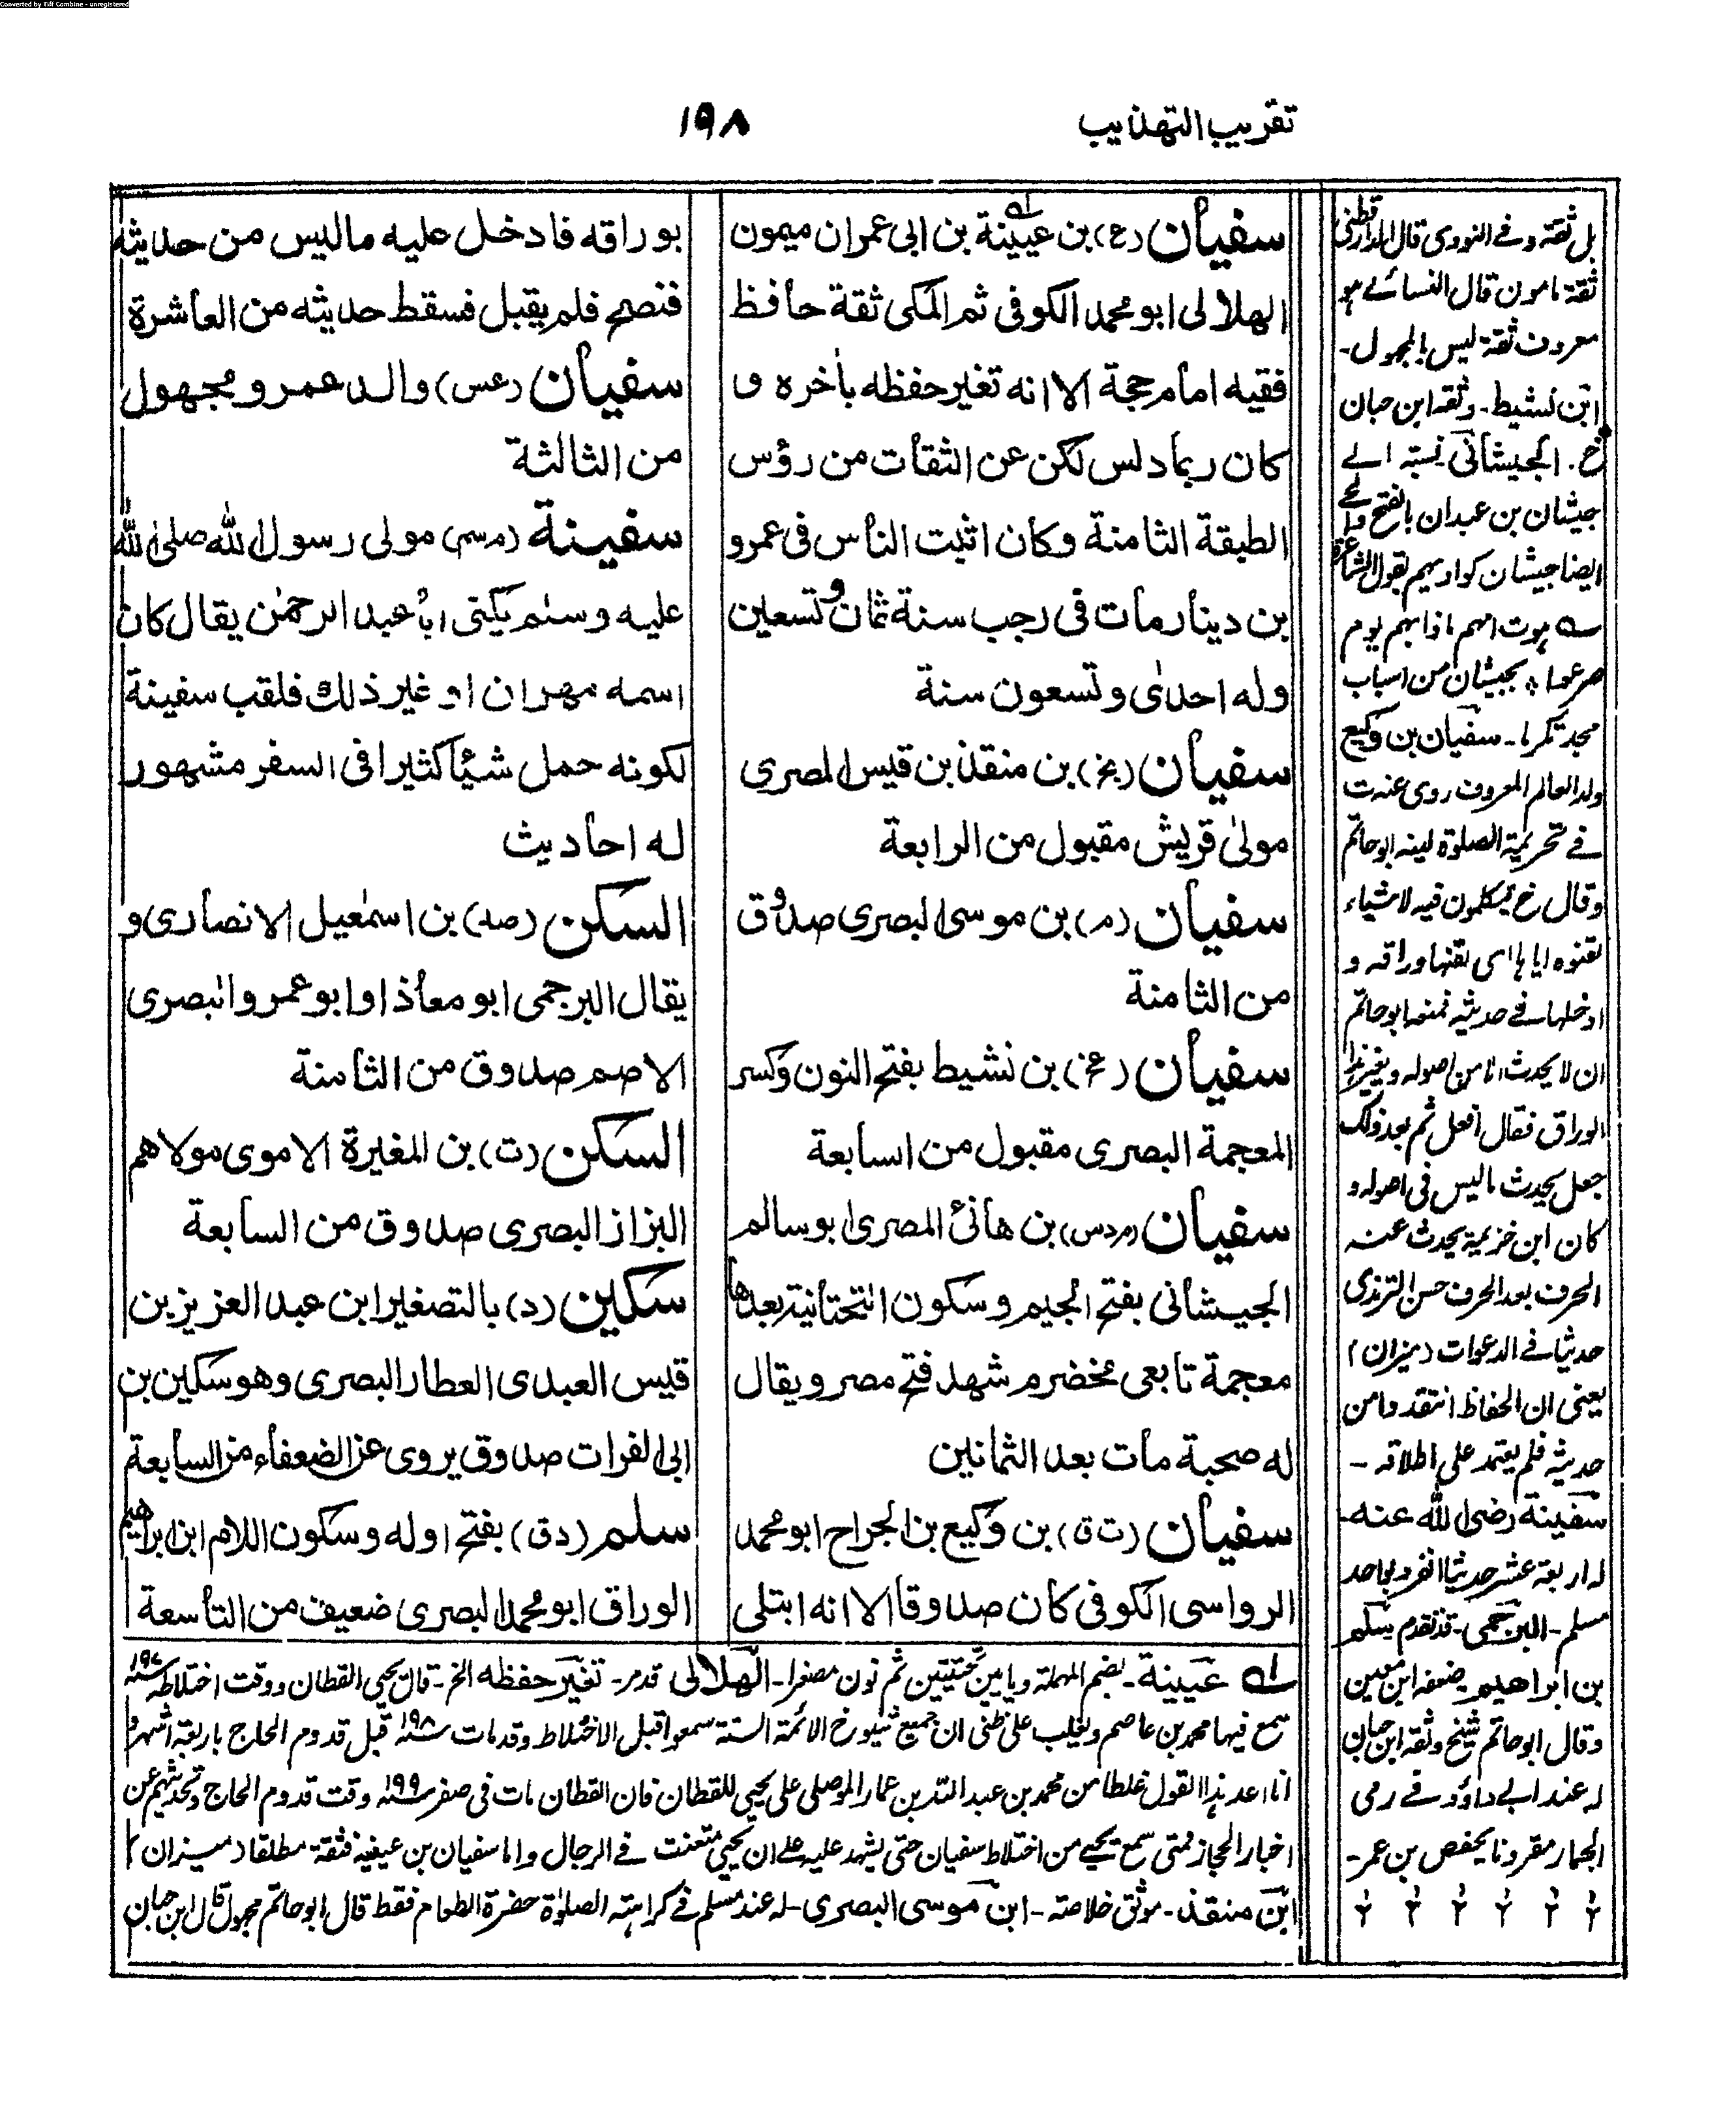 Converted by Tiff Combine - unregistered
تقريب التهذيب
١٩٨
سفيان (ع) بن عيينة بن ابى عمران ميمون
الهلالى ابو محمد الكوفى ثم المكى ثقة حافظ
فقيه امام حجة الا انه تغير حفظه بأخره و
كان ربما دلس لكن عن الثقات من رؤس
الطبقة الثامنة وكان اثبت الناس فى عمرو
بن دينار مات فى رجب سنة ثمان وتسعين
وله احدى وتسعون سنة
سفيان (بخ) بن منقذ بن قيس المصرى
مولى قريش مقبول من الرابعة
سفيان (م) بن موسى البصرى صدوق
من الثامنة
سفيان (عخ) بن نشيط بفتح النون وكسر
المعجمة البصرى مقبول من السابعة
سفيان (مردس) بن هانئ المصرى ابو سالم
الجيشانى بفتح الجيم وسكون التحتانية بعدها
معجمة تابعى مخضرم شهد فتح مصر ويقال
له صحبة مات بعد الثمانين
سفيان (ت ق) بن وكيع بن الجراح ابو محمد
الرواسى الكوفى كان صدوقا الا انه ابتلى
بوراقه فادخل عليه ماليس من حديثه
فنصح فلم يقبل فسقط حديثه من العاشرة
سفيان (عس) والد عمرو مجهول
من الثالثة
سفينة (مسم) مولى رسول الله صلى الله
عليه وسلم يكنى ابا عبد الرحمٰن يقال كان
اسمه مهران او غير ذلك فلقب سفينة
لكونه حمل شيئا كثيرا فى السفر مشهور
له احاديث
السكن (صد) بن اسمٰعيل الانصارى و
يقال البرجمى ابو معاذ او ابو عمرو البصرى
الاصم صدوق من الثامنة
السكن (ت) بن المغيرة الاموى مولاهم
البزاز البصرى صدوق من السابعة
سكين (د) بالتصغير ابن عبد العزيز بن
قيس العبدى العطار البصرى وهو سكين بن
ابى الفرات صدوق يروى عن الضعفاء من السابعة
سلم (دق) بفتح اوله وسكون اللام ابن ابراهيم
الوراق ابو محمد البصرى ضعيف من التاسعة
بل ثقة و فے النووى قال الدارقطنى
ثقة مامون قال النسائے هو
معروف ثقة ليس بالمجهول-
ابن نشيط- وثقه ابن حبان
خ. الجيشانى نسبة الے
جيشان بن عبدان بالفتح
ايضا جيشان
هوت امهم ماذا بهم يوم
صرعوا بجيشان من اسباب
مجد تكرما- سفيان بن وكيع
ولد العالم المعروف روى عنه ت
فے تحريمة الصلوة لينه ابو حاتم
وقال خ يتكلمون فيه لاشياء
لقنوه اياها اى لقنها وراقه و
ادخلها فے حديثه فمنعه ابو حاتم
ان لا يحدث الا من اصوله ويغير هذا
الوراق فقال افعل ثم بعد ذلك
جعل يحدث ماليس فى اصوله و
كان ابن خزيمة يحدث عنه
الحرف بعد الحرف حسن الترمذى
حديثا فے الدعوات (ميزان)
يعنى ان الحفاظ انتقدوا من
حديثه فلم يعتمد على اطلاقه-
سفينة رضى الله عنه-
له اربعة عشر حديثا انفرد بواحد
مسلم- البرجمى- قد تقدم سلم
بن ابراهيم ضعفه ابن معين
وقال ابو حاتم شيخ وثقه ابن حبان
له عند ابى داؤد فے رمى
الجمار مقرونا بحفص بن عمر-
له عيينة- بضم المهملة ويابين تحتيتين ثم نون مصغرا- الهلالى قدمر- تغير حفظه الخ- قال يحيى القطان ووقت اختلاطه سنة ١٩٧
سمع فيها محمد بن عاصم ويغلب على ظنى ان جميع شيوخ الائمة الستة سمعوا قبل الاختلاط وقد مات سنة ١٩٨ قبل قدوم الحاج باربعة اشهر و
انا اعد هذا القول غلطا من محمد بن عبد الله بن عمار الموصلى على يحيى القطان فان القطان مات فى صفر سنة ١٩٩ وقت قدوم الحاج وتحدثهم عن
اخبار الحجاز فمتى سمع يحيے من اختلاط سفيان حتى يشهد عليه علے ان يحيى متعنت فے الرجال واما سفيان بن عيينة فثقة مطلقا (ميزان)
ابن منقذ- موثق خلاصة- ابن موسى البصرى- له عند مسلم فے كراهته الصلوٰة حضرة الطعام فقط قال ابو حاتم مجهول قال ابن حبان